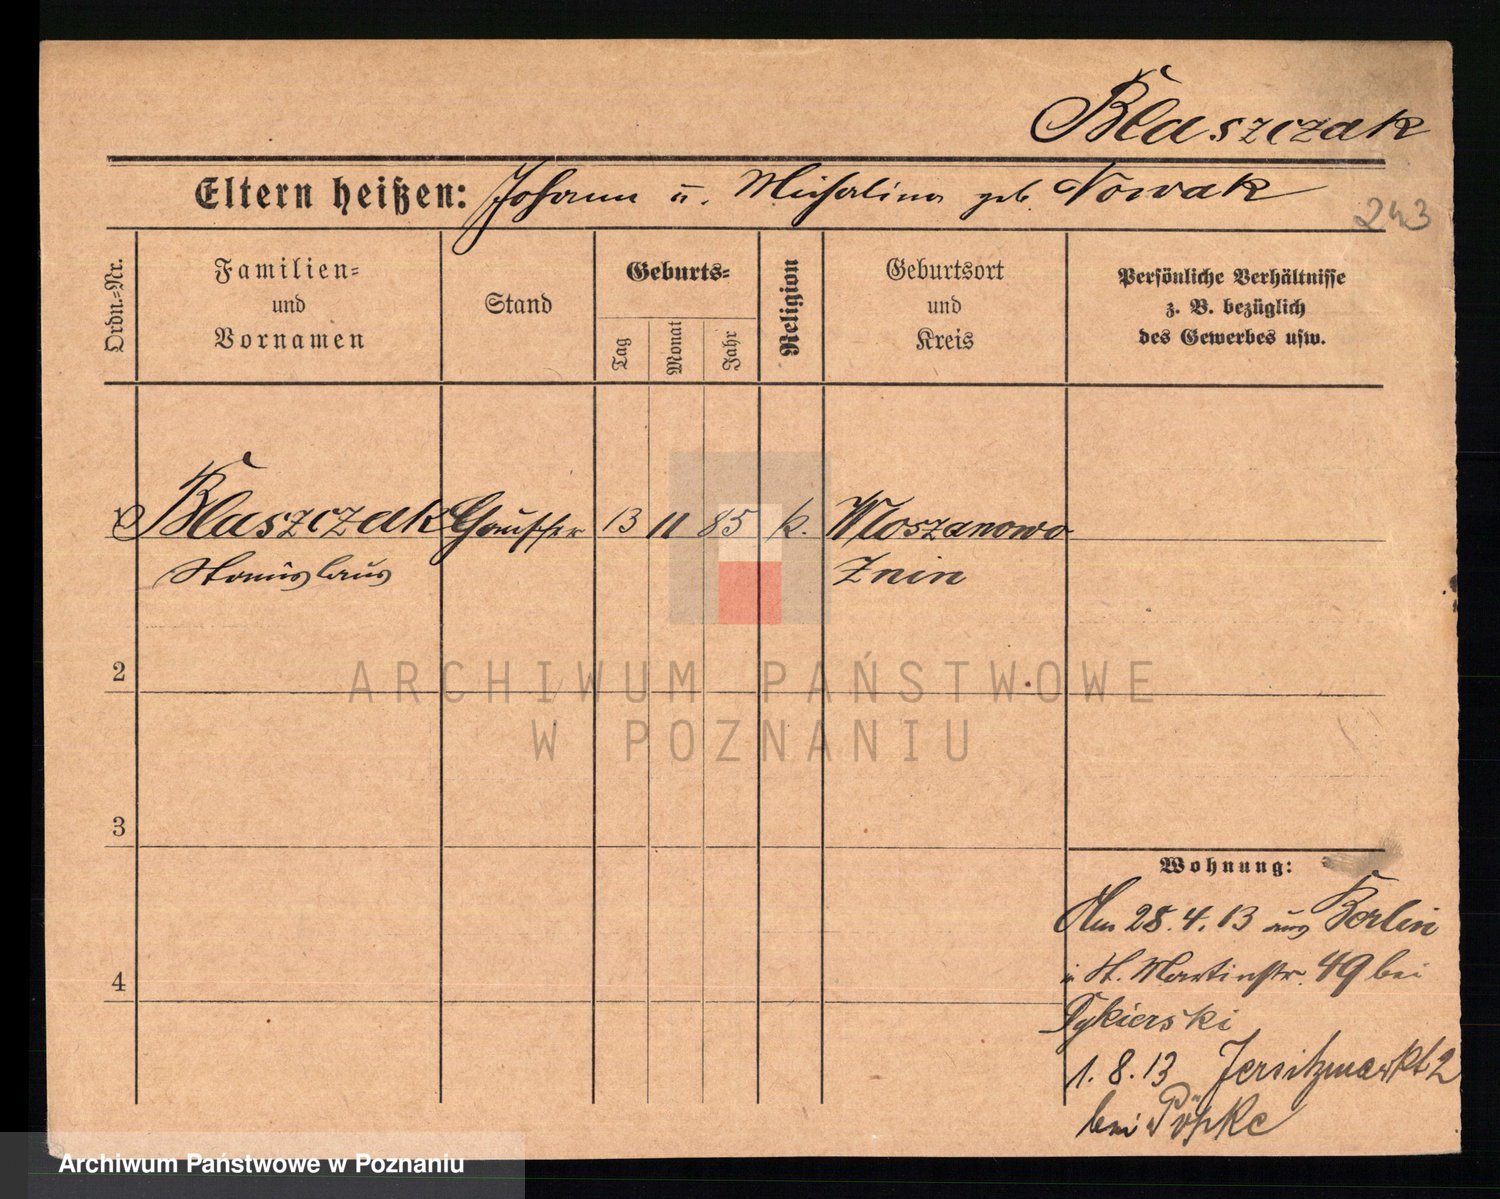 Blaszczak
Eltern heißen: Johann u. Michalina geb. Nowak
243
Ordn.=Nr.
Familien=
und
Vornamen
Stand
Geburts=
Tag
Monat
Jahr
Religion
Geburtsort
und
Kreis
Persönliche Verhältnisse
z. B. bezüglich
des Gewerbes usw.
1 Blaszczak 13 11 85 k. Wloszanowo
Stanislaus Znin
2
3
4
Wohnung:
Am 28.4.13 aus Berlin
St. Martinstr. 49 bei
Tykierski
1.8.13 Jersitzmarkt 2
bei Pöpke
ARCHIWUM PAŃSTWOWE
W POZNANIU
Archiwum Państwowe w Poznaniu